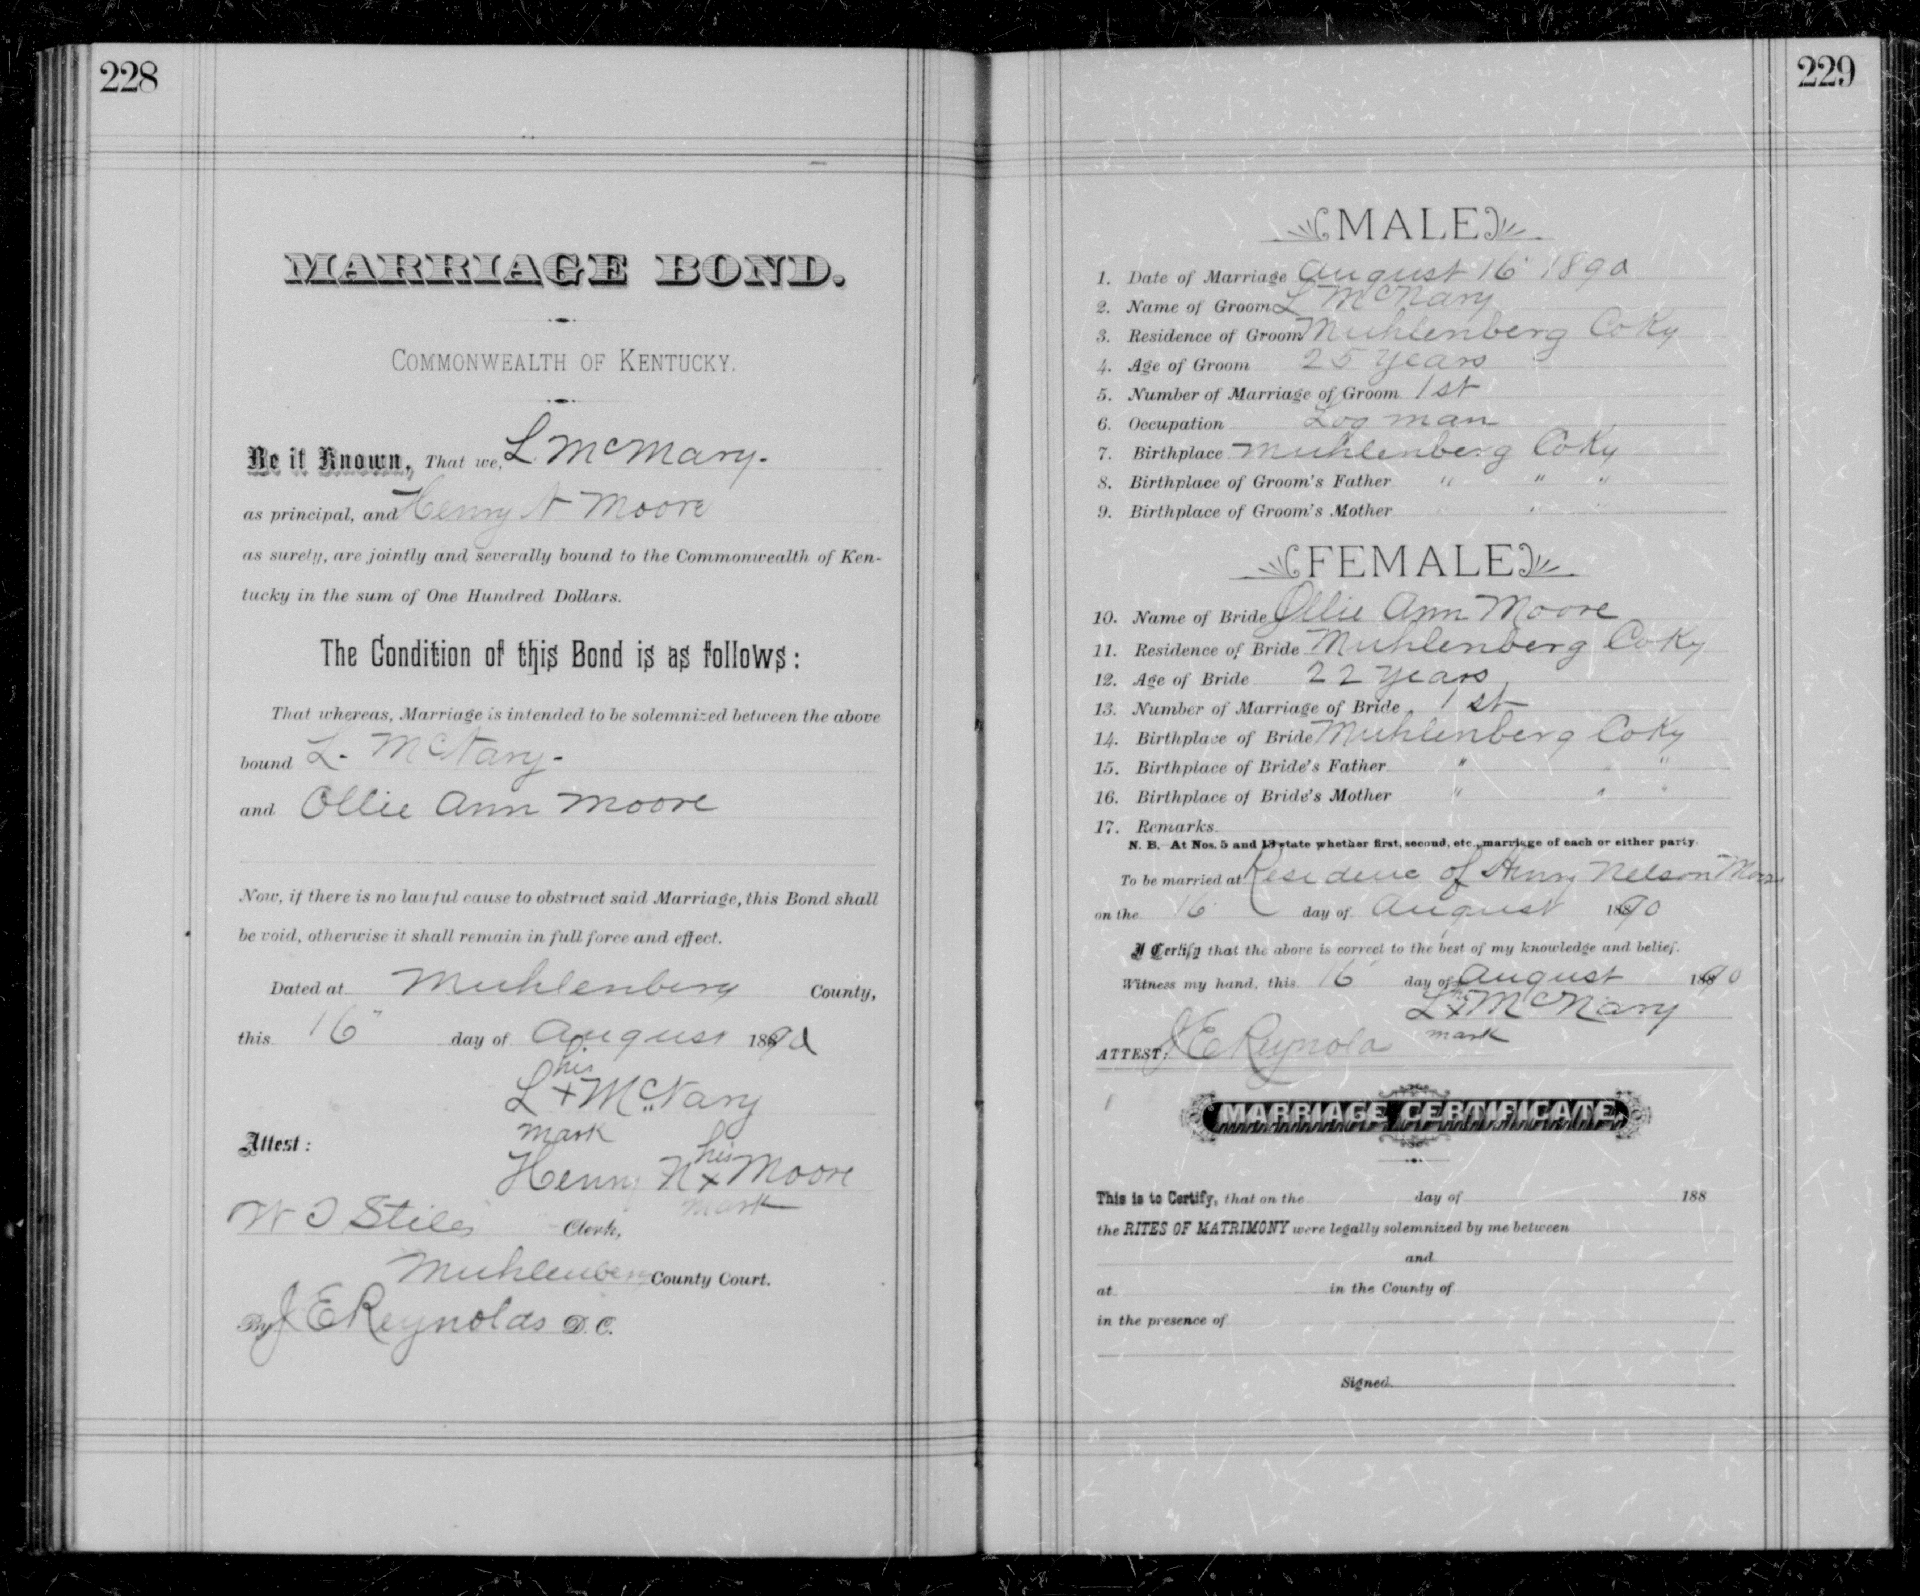 228
MARRIAGE BOND.
COMMONWEALTH OF KENTUCKY.
Be it Known, That we, L. McMary.
as principal, and Henry N Moore
as surely, are jointly and severally bound to the Commonwealth of Ken-
tucky in the sum of One Hundred Dollars.
The Condition of this Bond is as follows:
That whereas, Marriage is intended to be solemnized between the above
bound L. McNary-
and Ollie Ann Moore
Now, if there is no lawful cause to obstruct said Marriage, this Bond shall
be void, otherwise it shall remain in full force and effect.
Dated at Muhlenberg County,
this 16" day of August 1890
his
L + McNary
mark
Attest:
his
Henry N x Moore
mark
W T Stiles Clerk,
Muhlenberg County Court.
By J E Reynolds D. C.
229
MALE
1. Date of Marriage August 16 1890
2. Name of Groom L McNary
3. Residence of Groom Muhlenberg Co Ky
4. Age of Groom 25 years
5. Number of Marriage of Groom 1st
6. Occupation Log man
7. Birthplace Muhlenberg Co Ky
8. Birthplace of Groom's Father " " "
9. Birthplace of Groom's Mother " " "
FEMALE
10. Name of Bride Ollie Ann Moore
11. Residence of Bride Muhlenberg Co Ky
12. Age of Bride 22 years
13. Number of Marriage of Bride 1 st
14. Birthplace of Bride Muhlenberg Co Ky
15. Birthplace of Bride's Father " " "
16. Birthplace of Bride's Mother " " "
17. Remarks
N. B. At Nos. 5 and 13 state whether first, second, etc., marriage of each or either party.
To be married at Residence of Henry Nelson Moore
on the 16 day of August 1890
I Certify that the above is correct to the best of my knowledge and belief.
Witness my hand, this 16 day of August 1890
L x McNary
mark
ATTEST: J E Reynolds
MARRIAGE CERTIFICATE.
This is to Certify, that on the day of 188
the RITES OF MATRIMONY were legally solemnized by me between
and
at in the County of
in the presence of
Signed